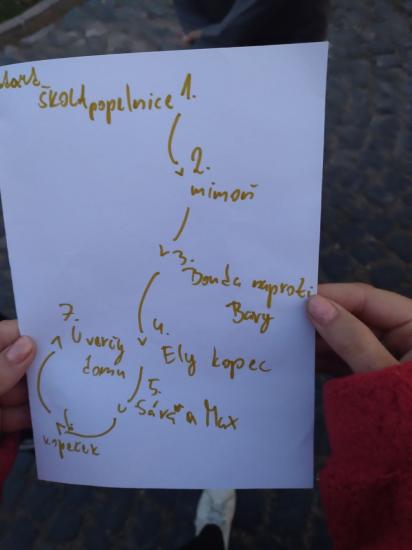 start
ŠKOLA popelnice 1.
2.
mimoň
3.
Bouda naproti
Bary
4.
Ely kopec
5.
Sára a Max
6.
kopeček
7.
U verčy
domu